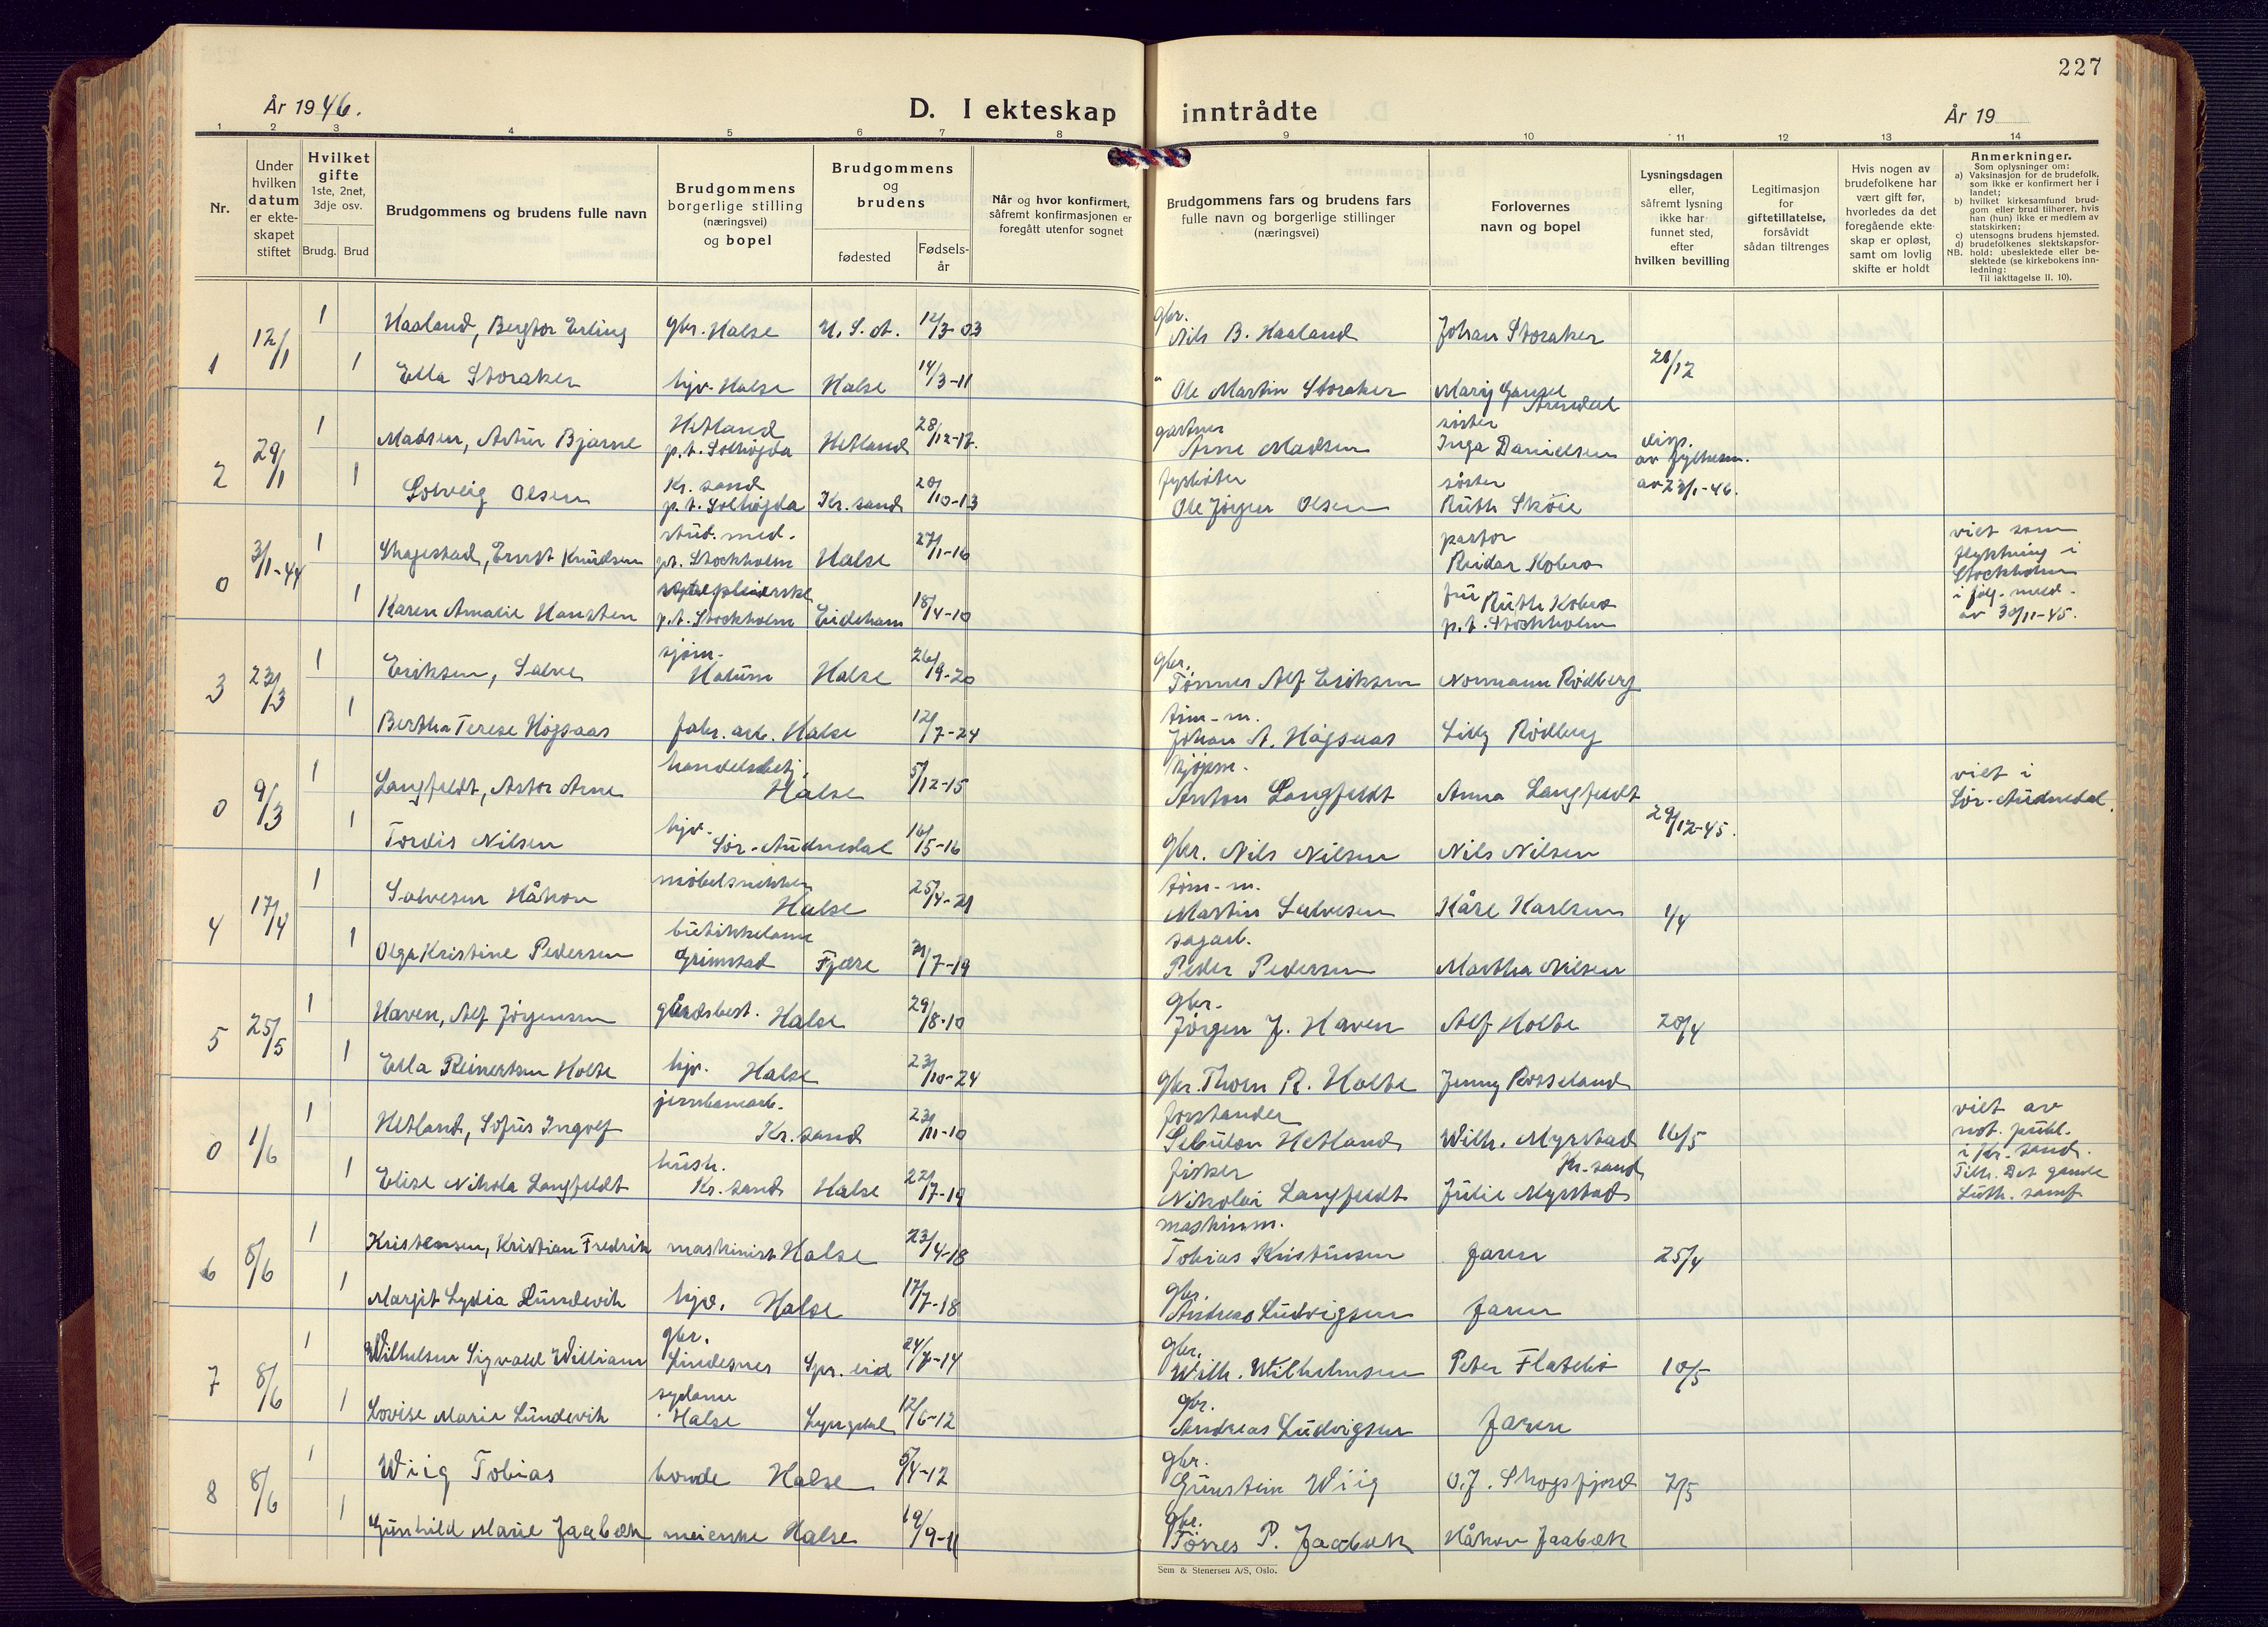 227
År 1946.
D. I ekteskap inntrådte
År 19
1 2 3 4 5 6 7 8 9 10 11 12 13 14
Nr.
Under hvilken datum er ekteskapet stiftet
Hvilket gifte 1ste, 2net, 3dje osv.
Brudg. Brud
Brudgommens og brudens fulle navn
Brudgommens borgerlige stilling (næringsvei) og bopel
Brudgommens og brudens
fødested
Fødsels-år
Når og hvor konfirmert, såfremt konfirmasjonen er foregått utenfor sognet
Brudgommens fars og brudens fars fulle navn og borgerlige stillinger (næringsvei)
Forlovernes navn og bopel
Lysningsdagen eller, såfremt lysning ikke har funnet sted, efter hvilken bevilling
Legitimasjon for giftetillatelse, forsåvidt sådan tiltrenges
Hvis nogen av brudefolkene har vært gift før, hvorledes da det foregående ekteskap er opløst, samt om lovlig skifte er holdt
Anmerkninger.
Som oplysninger om:
a) Vaksinasjon for de brudefolk, som ikke er konfirmert her i landet;
b) hvilket kirkesamfund brudgom eller brud tilhører, hvis han (hun) ikke er medlem av statskirken;
c) utensogns brudens hjemsted.
d) brudefolkenes slektskapsforhold: ubeslektede eller beslektede (se kirkebokens innledning:
NB. Til iakttagelse II. 10).
1 12/1 1 Haaland, Bergtor Erling gbr. Halse U.S.A. 12/3-03 gbr. Nils B. Haaland Johan Storaker
21/12
1 Ella Storaker hjv. Halse Halse 14/3-11 " Ole Martin Storaker Mary Arendal
2 29/1 1 Madsen, Artur Bjarne Hetland p.t. Solhøgda Hetland 28/12-17. gartner Arne Madsen søster Inga Danielsen
disp. av fylkesm. av 23/1-46.
1 Solveig Olsen Kr. sand p.t. Solhøgda Kr. sand 20/10-13 fyrbøter Ole Jørgen Olsen søster Ruth Skøie
0 3/1-44 1 Skagestad, Ernst Knudsen stud. med. p.t. Stockholm Halse 27/1-16 pastor Reidar Kobro
viet som flyktning i Stockholm i følg. med. av 30/11-45.
1 Karen Amalie Hansten sykepleierske p.t. Stockholm Eidsham 18/4-10 fru Ruth Kobro p.t. Stockholm
3 23/3 1 Eriksen, Salve sjøm. Halse 26/9-20 gbr. Tønnes Alf Eriksen Normann Rødberg
1 Bertha Terese Høgsaas fabr. arb. Halse 12/7-24 tøm-m. Johan A. Høgsaas Lilly Rødberg
0 9/3 1 Langfeldt, Astor Arne handelsbetj. Halse 5/12-15 kjøpm. Anton Langfeldt Anna Langfeldt
29/12-45.
viet i Sør-Audnedal.
1 Tordis Nilsen hjv. Sør-Audnedal 16/5-16 gbr. Nils Nilsen Nils Nilsen
4 17/4 1 Salvesen Håkon møbelsnekker Halse 25/4-21 tøm-m. Martin Salvesen Kåre Karlsen 1/4
1 Olga Kristine Pedersen butikkdame Grimstad Fjære 31/7-19 sagarb. Peder Pedersen Martha Nilsen
5 25/5 1 Haven, Alf Jørgensen gårdsbest. Halse 29/8-10 gbr. Jørgen J. Haven Alf Holte 20/4
1 Ella Reinertsen Holte hjv. Halse 23/10-24 gbr. Thom R. Holte Jenny Rosseland
0 1/6 1 Hetland, Sofus Ingolf jernbanearb. Kr. sand 23/11-10 forstander Sebulon Hetland Wilh. Myrstad Kr. sand 16/5
viet av not. publ. i Kr. sand. Tilh. Det gamle Luth. samf.
1 Elise Nikola Langfeldt hush. Kr. sand Halse 22/7-19 fisker Nikolai Langfeldt Julie Myrstad
6 8/6 1 Kristensen, Kristian Fredrik maskinist Halse 23/4-18 maskinm. Tobias Kristensen faren 25/4
1 Margit Lydia Lundevik hjv. Halse 17/7-18 gbr. Andreas Ludvigsen faren
7 8/6 1 Wilhelmsen Sigvald William gbr. Lindesnes Spr. eid 24/7-14 gbr. Wilh. Wilhelmsen Peter Flatebø 10/5
1 Lovise Marie Lundevik sydame Halse Lyngdal 12/6-12 gbr. Andreas Ludvigsen faren
8 8/6 1 Wiig Tobias bonde Halse 5/4-12 gbr. Gunstein Wiig O.J. Skogsfjord 7/5
1 Gunhild Marie Jaabæk meierske Halse 19/9-11 gbr. Tørres P. Jaabæk Håkon Jaabæk
Sem & Stenersen A/S, Oslo.